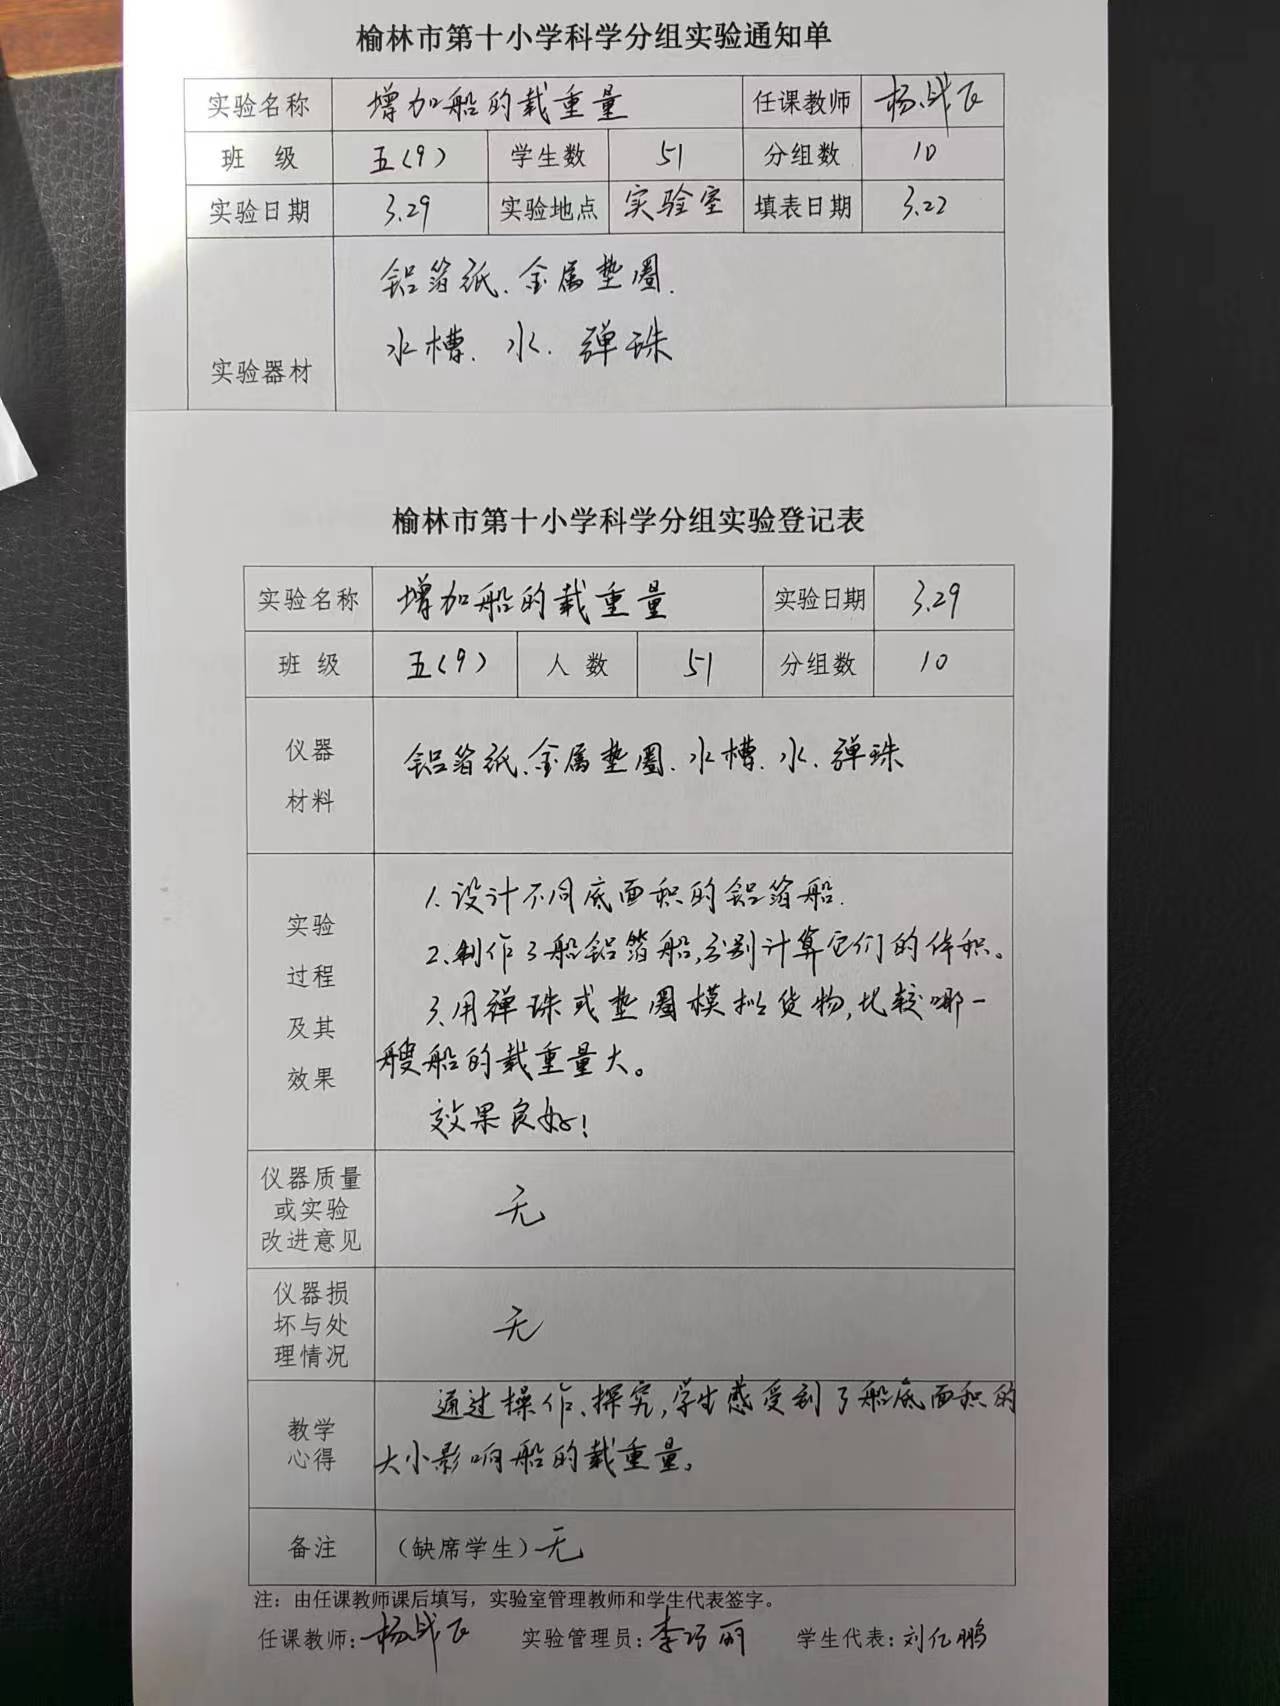 榆林市第十小学科学分组实验通知单
实验名称 增加船的载重量 任课教师 杨战飞
班 级 五(9) 学生数 51 分组数 10
实验日期 3.29 实验地点 实验室 填表日期 3.22
铝箔纸、金属垫圈、
水槽、水、弹珠
实验器材
榆林市第十小学科学分组实验登记表
实验名称 增加船的载重量 实验日期 3.29
班 级 五(9) 人 数 51 分组数 10
仪器
材料
铝箔纸、金属垫圈、水槽、水、弹珠
实验
过程
及其
效果
1.设计不同底面积的铝箔船.
2.制作了船铝箔船,分别计算它们的体积。
3.用弹珠或垫圈模拟货物,比较哪一
艘船的载重量大。
效果良好!
仪器质量
或实验
改进意见
无
仪器损
坏与处
理情况
无
教学
心得
通过操作、探究,学生感受到了船底面积的
大小影响船的载重量。
备注 (缺席学生)无
注:由任课教师课后填写,实验室管理教师和学生代表签字。
任课教师:杨战飞 实验管理员:李巧丽 学生代表:刘亿鹏